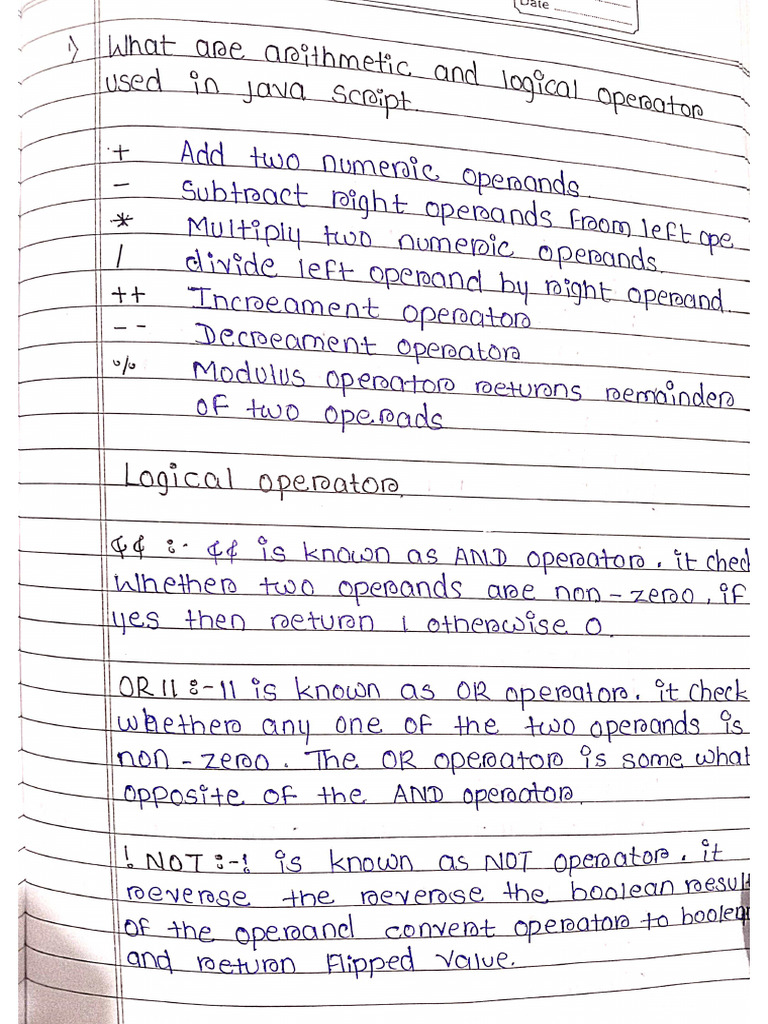 Date
1) What are arithmetic and logical operator
used in java script.
+ Add two numeric operands.
- Subtract right operands from left ope
* Multiply two numeric operands.
/ divide left operand by right operand.
++ Increament operator
-- Decreament operator
% Modulus operator returns remainder
of two operads
Logical operator.
&& :- && is known as AND operator. it chec
Whether two operands are non-zero, if
yes then return 1 otherwise 0.
OR || :- || is known as OR operator. it check
whether any one of the two operands is
non-zero. The OR operator is some what
opposite of the AND operator.
! NOT :- ! is known as NOT operator. it
reverse the reverse the boolean result
of the operand convert operator to boolean
and return flipped value.